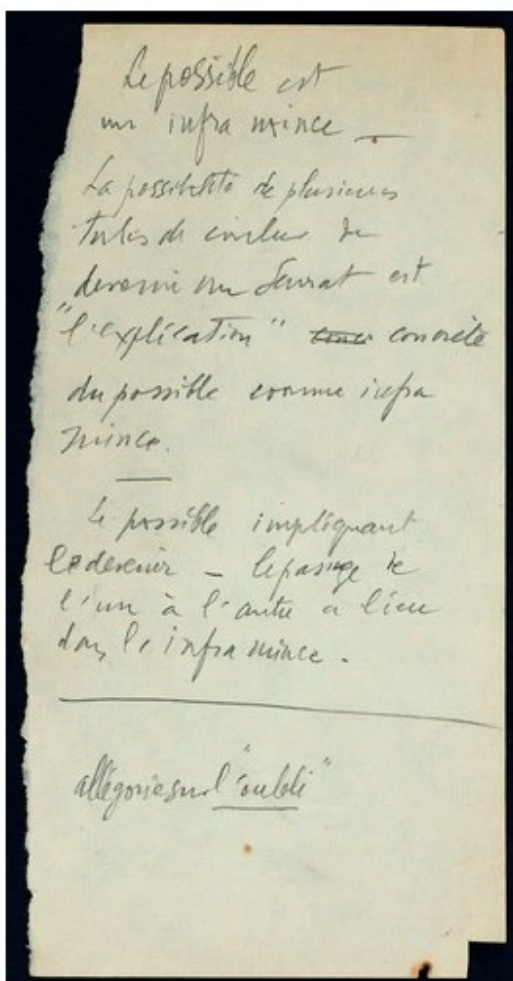 Le possible est
un infra mince —
La possibilité de plusieurs
tubes de couleur de
devenir un Seurat est
"l'explication" concrète
du possible comme infra
mince.
Le possible impliquant
le devenir – le passage de
l'un à l'autre a lieu
dans l'infra mince.
allégorie sur l'"oubli"